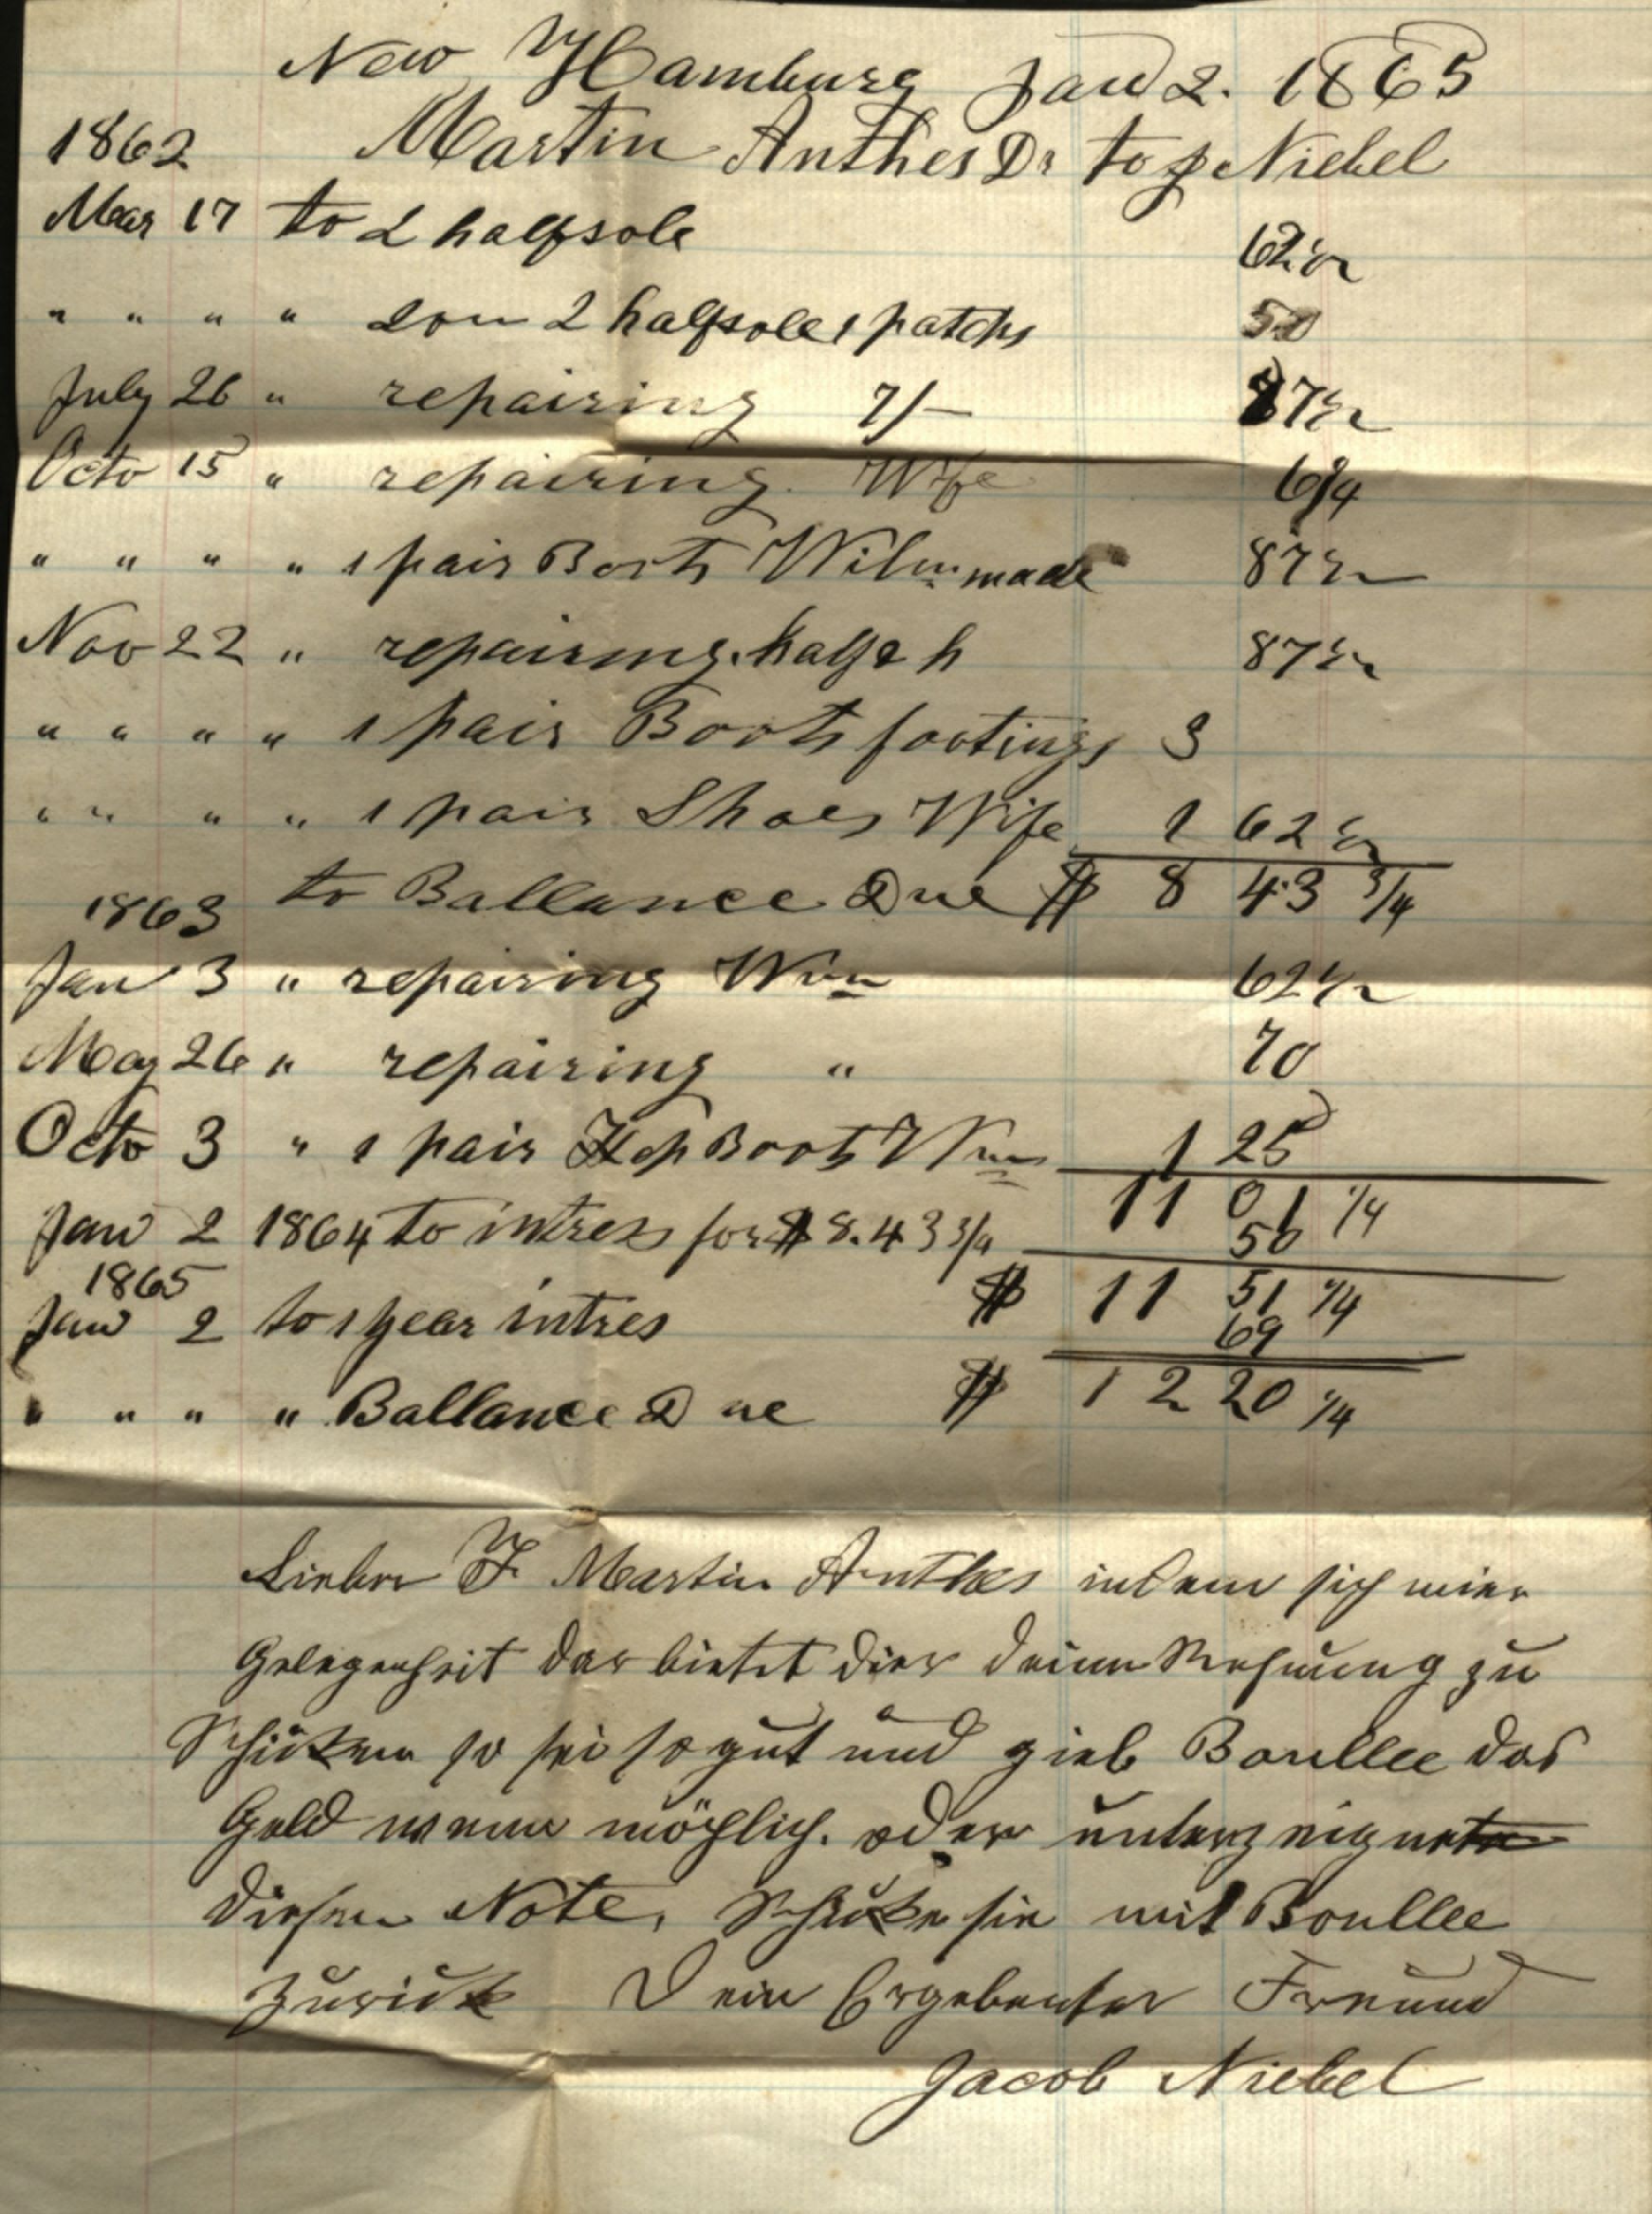 New Hamburg Jan 2. 1865
1862 Martin Anthes Dr to J Niebel
Mar 17 to 2 halfsole 62 1/2
" " " " son 2 halfsole 1 patchs 50
July 26 " repairing 7/- 87 1/2
Octo 15 " repairing Wife 6 1/4
" " " " 1 pair Boots Wilm made 87 1/2
Nov 22 " repairing. half & h 87 1/2
" " " " 1 pair Boots footings 3
" " " " 1 pair Shoes Wife 1 62 1/2
to Ballance Due $ 8 43 3/4
1863
Jan 3 " repairing Wm 62 1/2
May 26 " repairing " 70
Octo 3 " 1 pair Boots Wm 1 25
11 01 1/4
Jan 2 1864 to intres for $ 8.43 3/4 50
1865 $ 11 51 1/4
Jan 2 to 1 year intres 69
" " " " Ballance Due $ 12 20 1/4
Lieber F Martin Anthes indem sich mier
Gelegenheit dar bietet dier deine Rechnung zu
Schicken so sei so gut und gieb Boullee das
Geld wenn möchlich. oder unterzeignete
diesen Note, Schicke sie mit Boullee
Zurick Dein Ergebenster Freund
Jacob Niebel